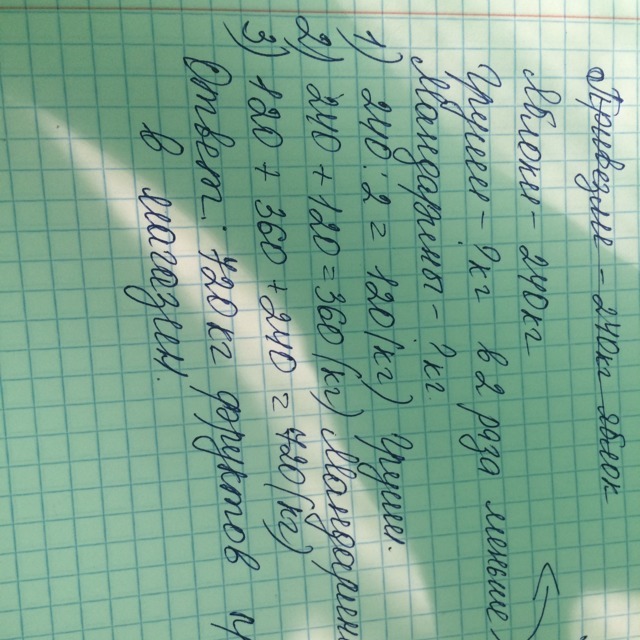 Привезли - 240кг яблок
Яблоки - 240кг
Груши - ?кг в 2 раза меньше
Мандарины - ?кг
1) 240:2=120(кг) Груши.
2) 240+120=360(кг) Мандарины
3) 120+360+240=720(кг)
Ответ: 720кг фруктов
в магазин.